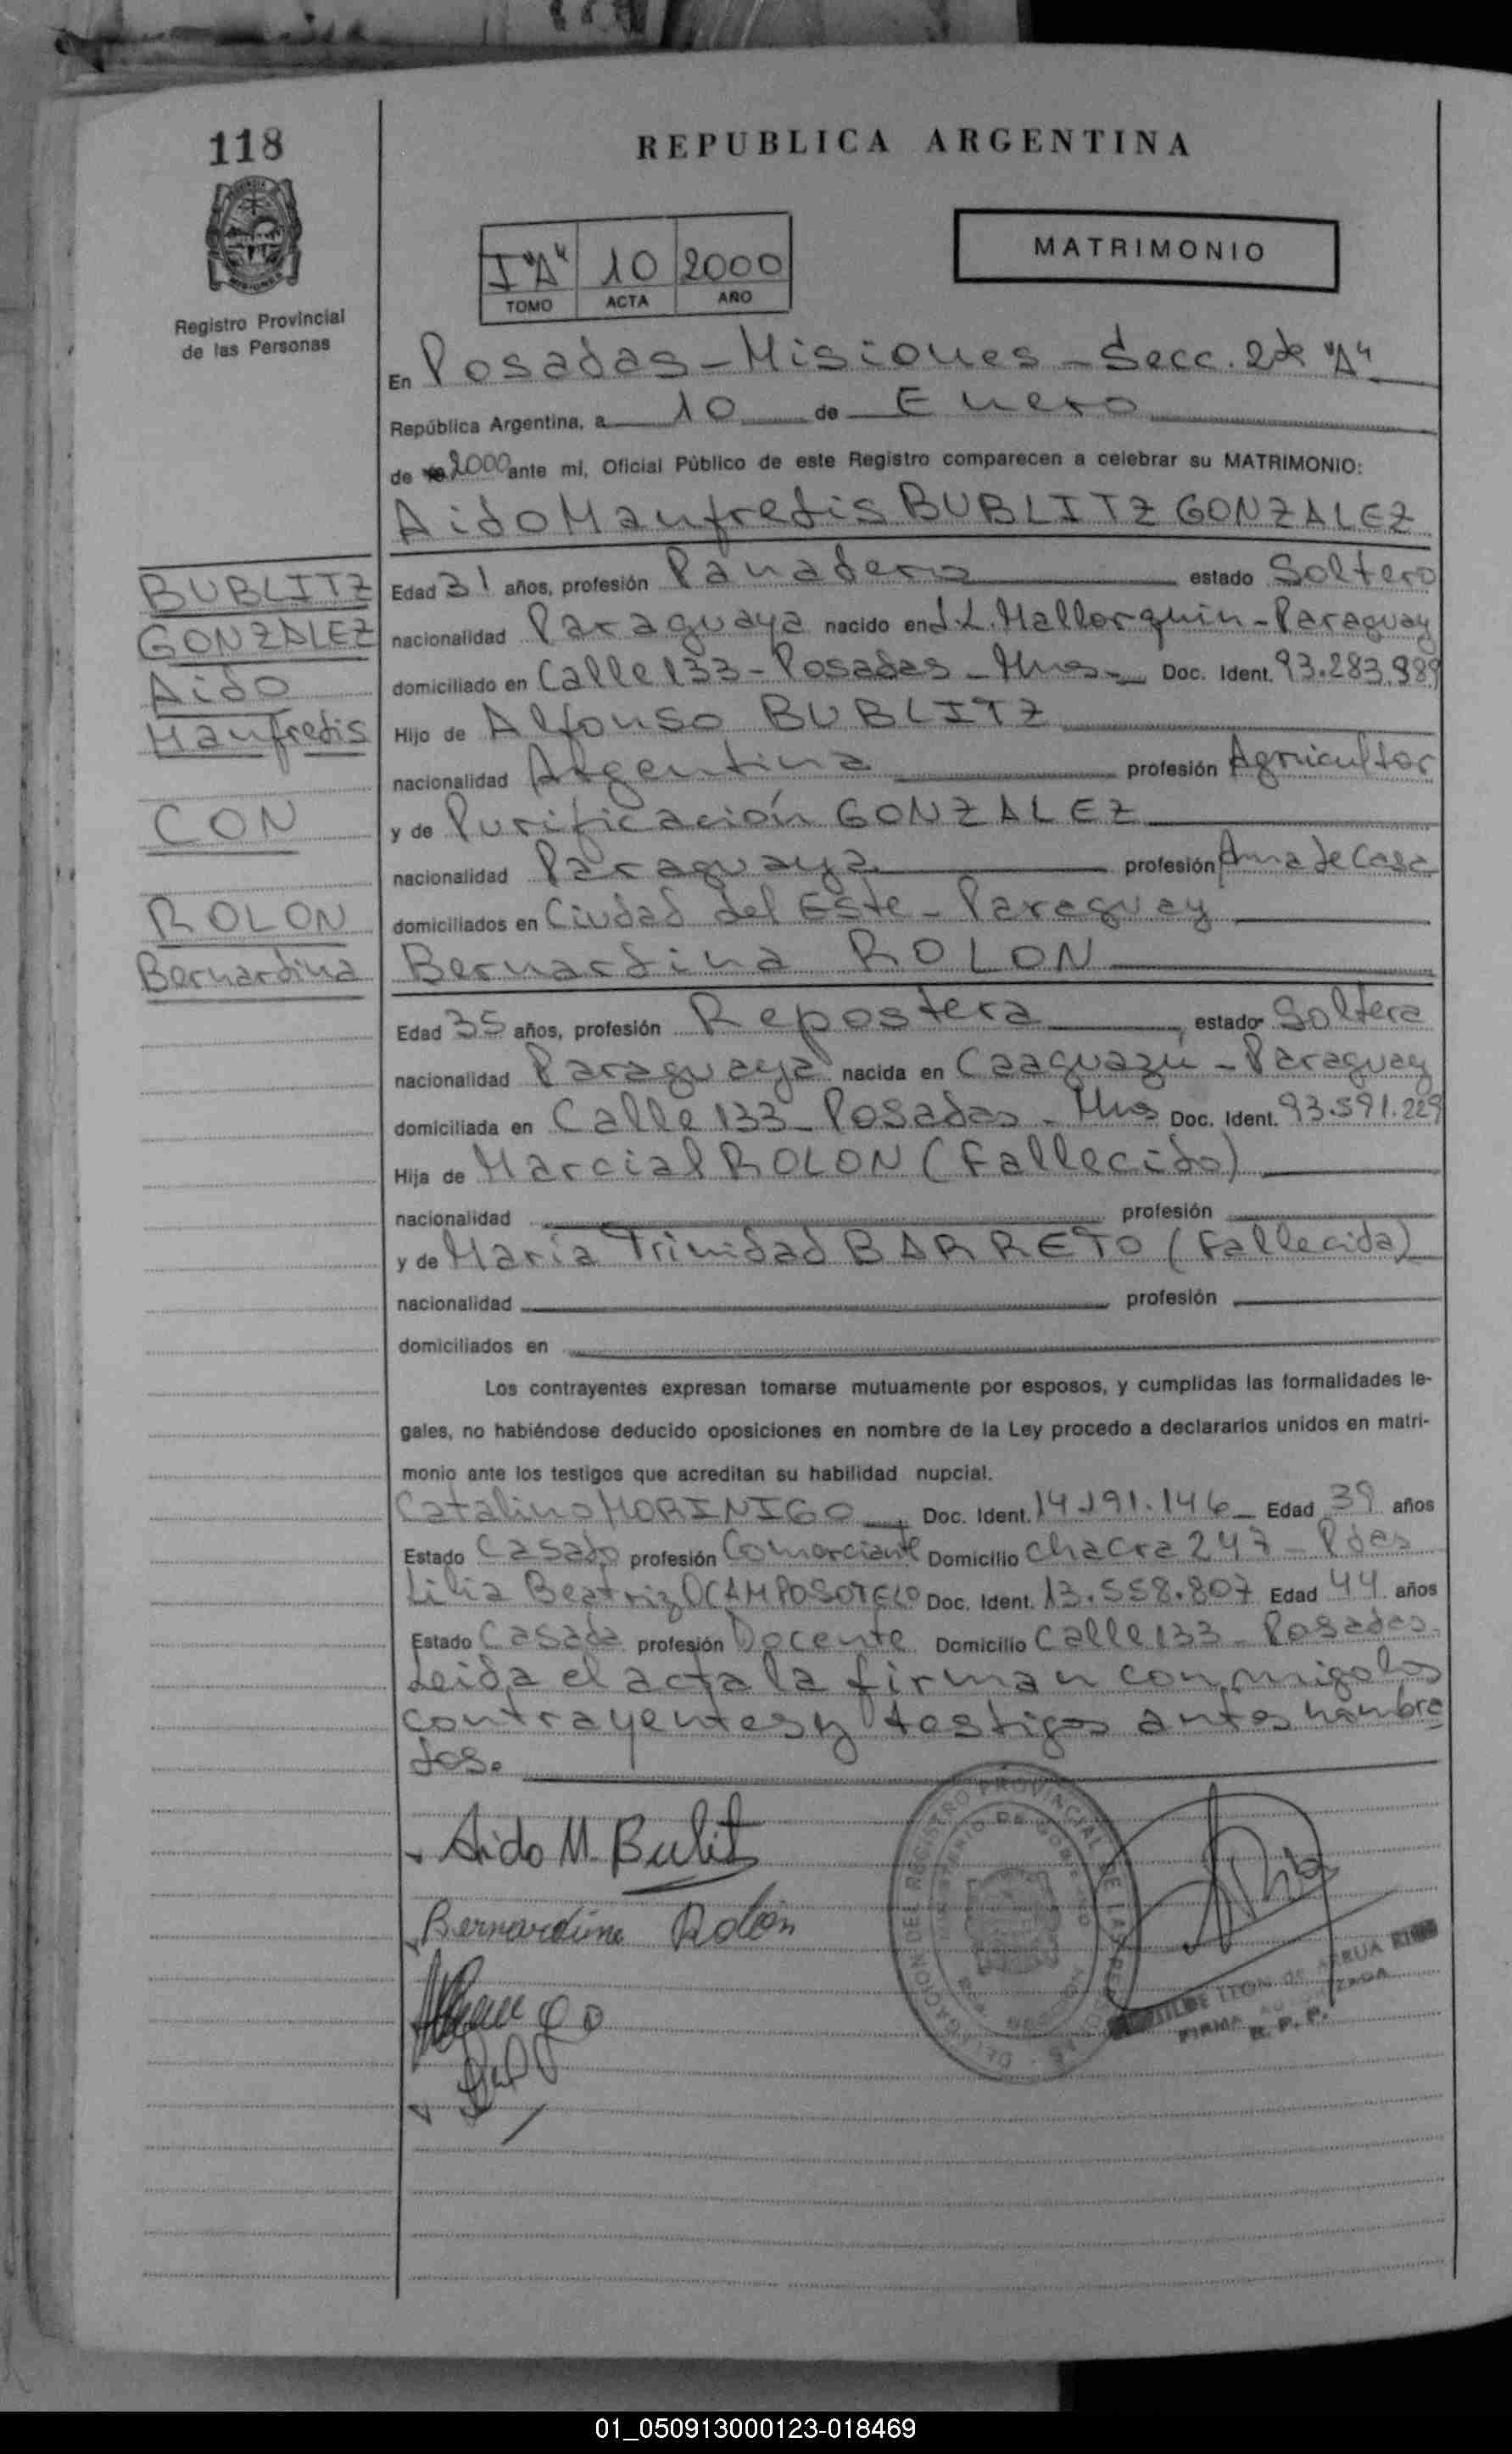 118
REPUBLICA ARGENTINA
I "A" 10 2000
TOMO ACTA AÑO
MATRIMONIO
Registro Provincial
de las Personas
En Posadas - Misiones - Secc. 2da "A"
República Argentina, a 10 de Enero
de 2000 ante mí, Oficial Público de este Registro comparecen a celebrar su MATRIMONIO:
Aido Manfredis BUBLITZ GONZALEZ
BUBLITZ
GONZALEZ
Aido
Manfredis
CON
ROLON
Bernardina
Edad 31 años, profesión Panadero estado Soltero
nacionalidad Paraguaya nacido en J.L. Mallorquin - Paraguay
domiciliado en Calle 133 - Posadas - Mnes - Doc. Ident. 93.283.989
Hijo de Alfonso BUBLITZ
nacionalidad Argentina profesión Agricultor
y de Purificación GONZALEZ
nacionalidad Paraguaya profesión Ama de Casa
domiciliados en Ciudad del Este - Paraguay
Bernardina ROLON
Edad 35 años, profesión Repostera estado Soltera
nacionalidad Paraguaya nacida en Caaguazú - Paraguay
domiciliada en Calle 133 - Posadas - Mnes Doc. Ident. 93.591.229
Hija de Marcial ROLON (Fallecido)
nacionalidad profesión
y de María Trinidad BARRETO (Fallecida)
nacionalidad profesión
domiciliados en
Los contrayentes expresan tomarse mutuamente por esposos, y cumplidas las formalidades le-
gales, no habiéndose deducido oposiciones en nombre de la Ley procedo a declararlos unidos en matri-
monio ante los testigos que acreditan su habilidad nupcial.
Catalino MORINIGO Doc. Ident. 14.191.146 Edad 39 años
Estado Casado profesión Comerciante Domicilio Chacra 247 - Pdas
Lilia Beatriz OCAMPO SOTELO Doc. Ident. 13.558.807 Edad 44 años
Estado Casada profesión Docente Domicilio Calle 133 - Posadas
Leida el acta la firman conmigo los
contrayentes y testigos antes nombra
dos.
Aido M. Bulit
Bernardina Rolón
DELEGACION DEL REGISTRO PROVINCIAL DE LAS PERSONAS
MINISTERIO DE GOBIERNO
LEON DE ARRUA
FIRMA AUTORIZADA
R. P. P.
01_050913000123-018469